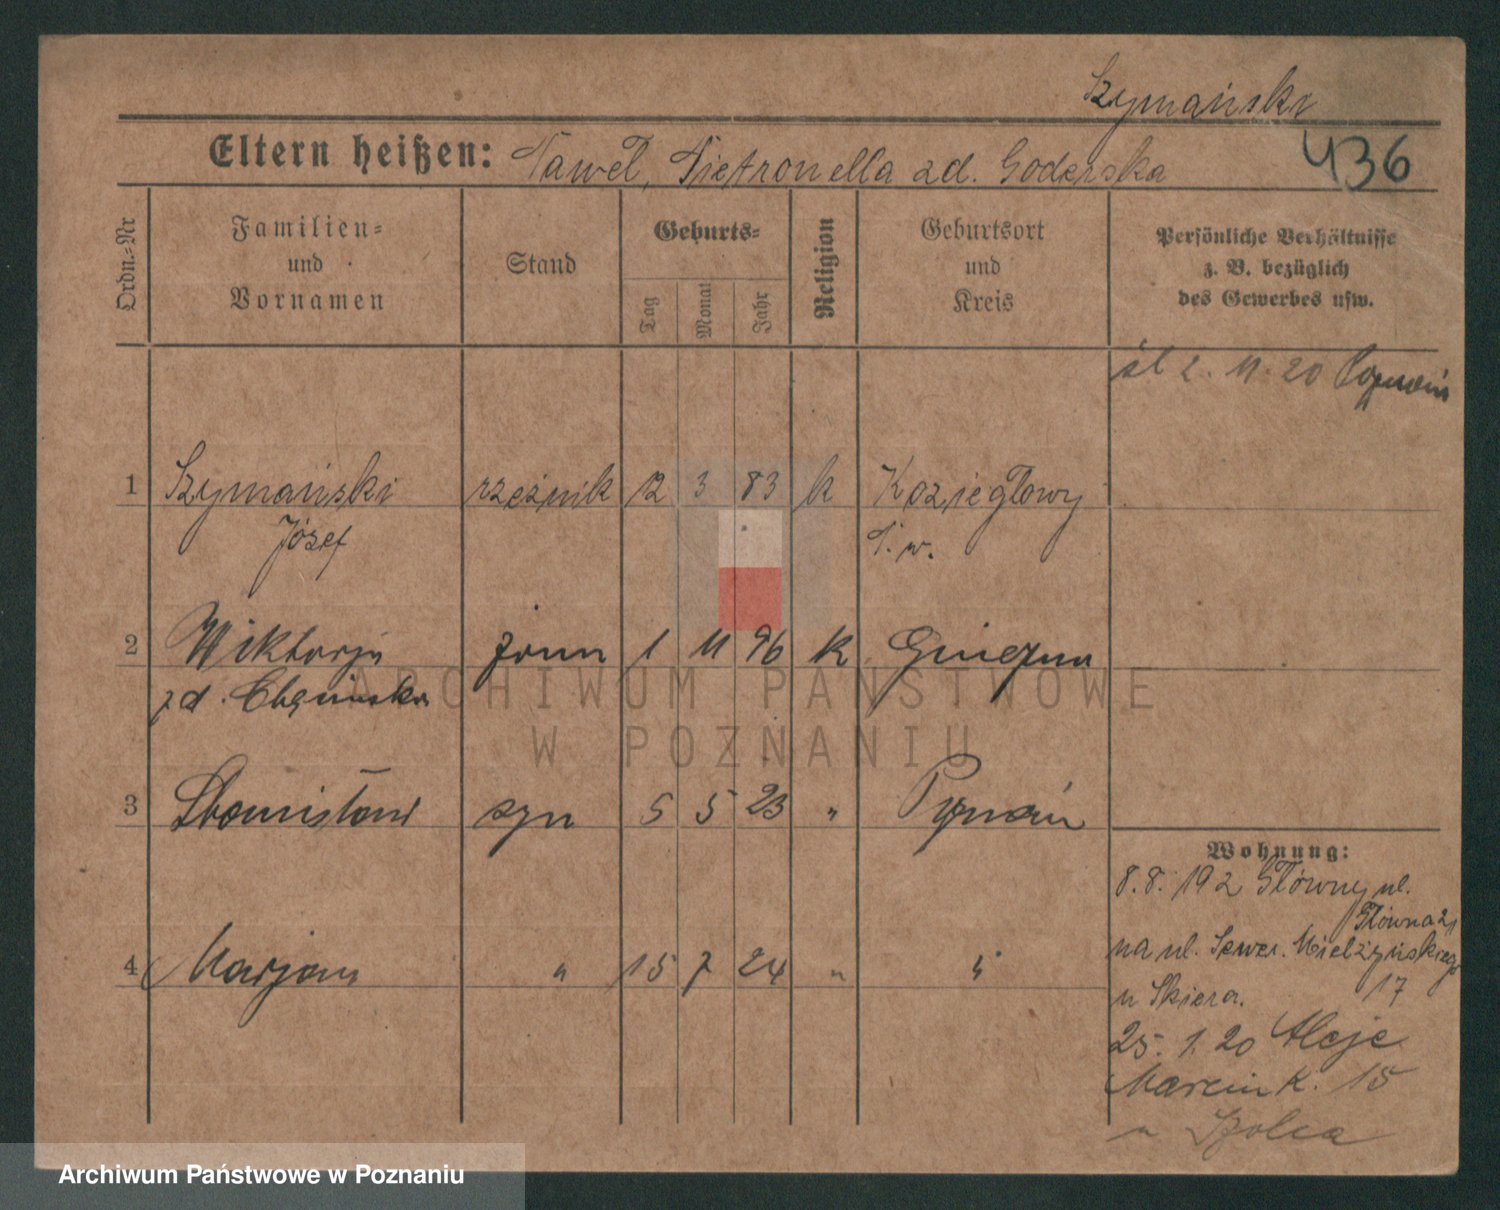 Szymański
Eltern heißen: Paweł, Pietronella zd. Goderska
436
Ordn.-Nr
Familien-
und
Vornamen
Stand
Geburts-
Tag
Monat
Jahr
Religion
Geburtsort
und
Kreis
Persönliche Verhältnisse
z. B. bezüglich
des Gewerbes usw.
śl 2. 11. 20 Poznań
1 Szymański rzeźnik 12 3 83 k Koziegłowy
Józef P. w.
2 Wiktorja żona 1 11 96 k Gniezno
zd.
3 Stanisław syn 5 5 23 " Poznań
4 Marjan " 15 7 24 " "
Wohnung:
8.8. 192 Główny ul.
Główna 21
na ul. Sewer. Mielżyńskiego
u Skiera. 17
25. 1. 20 Aleje
Marcink. 15
u Szolca
ARCHIWUM PAŃSTWOWE
W POZNANIU
Archiwum Państwowe w Poznaniu